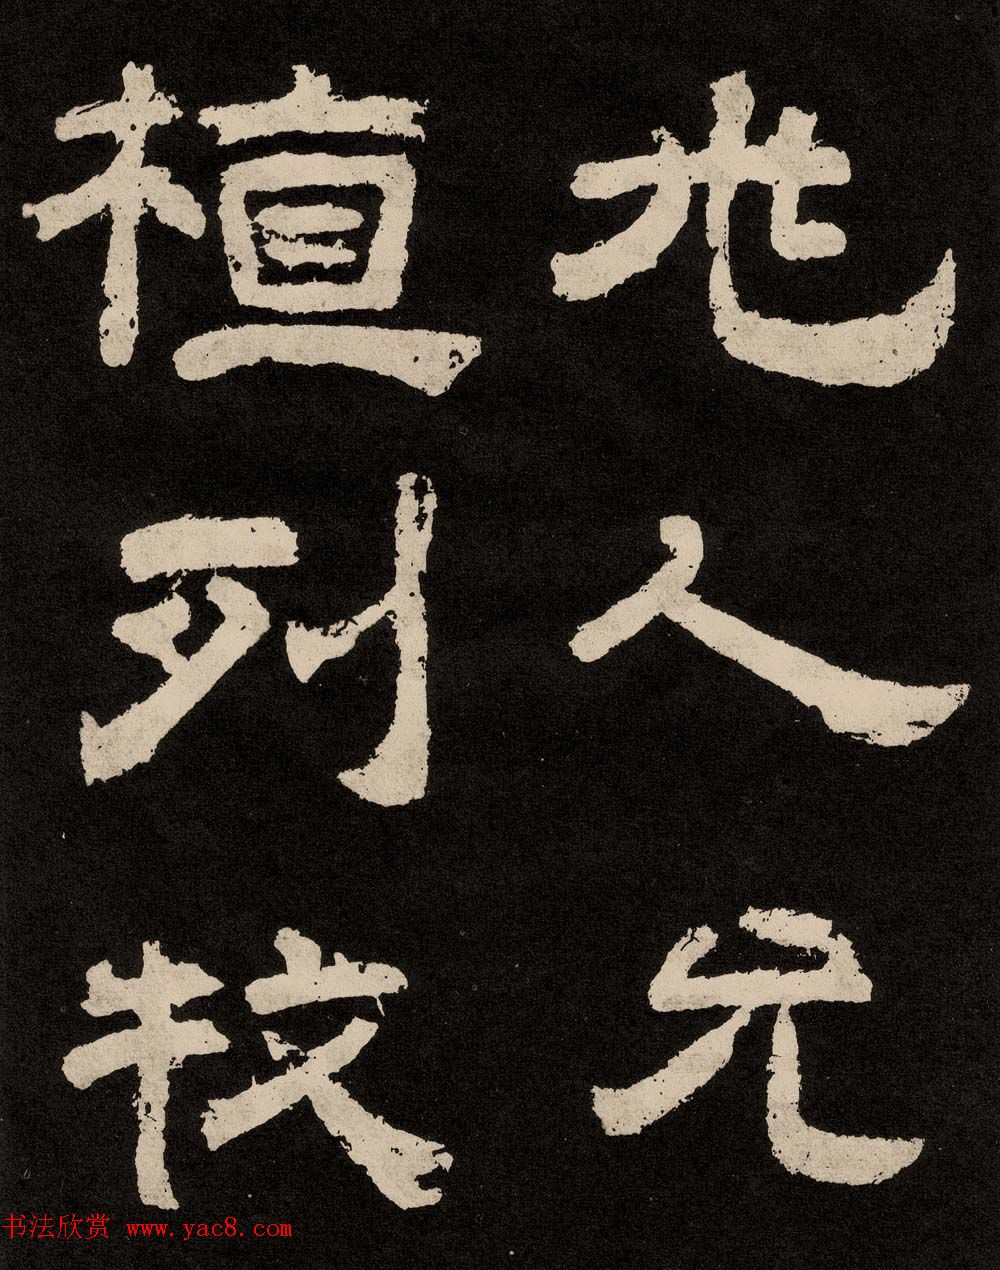 世人元
桓列牧
书法欣赏 www.yac8.com